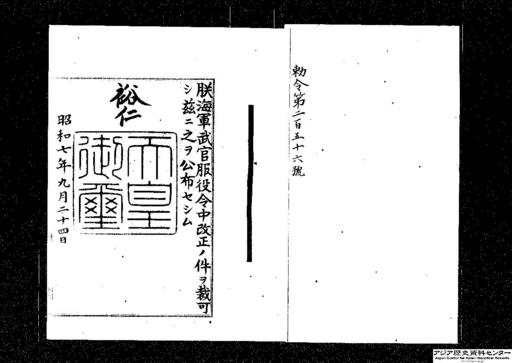 勅令第二百五十六號
朕海軍武官服役令中改正ノ件ヲ裁可
シ茲ニ之ヲ公布セシム
裕仁
天皇
御璽
昭和七年九月二十四日
アジア歴史資料センター
Japan Center for Asian Historical Records